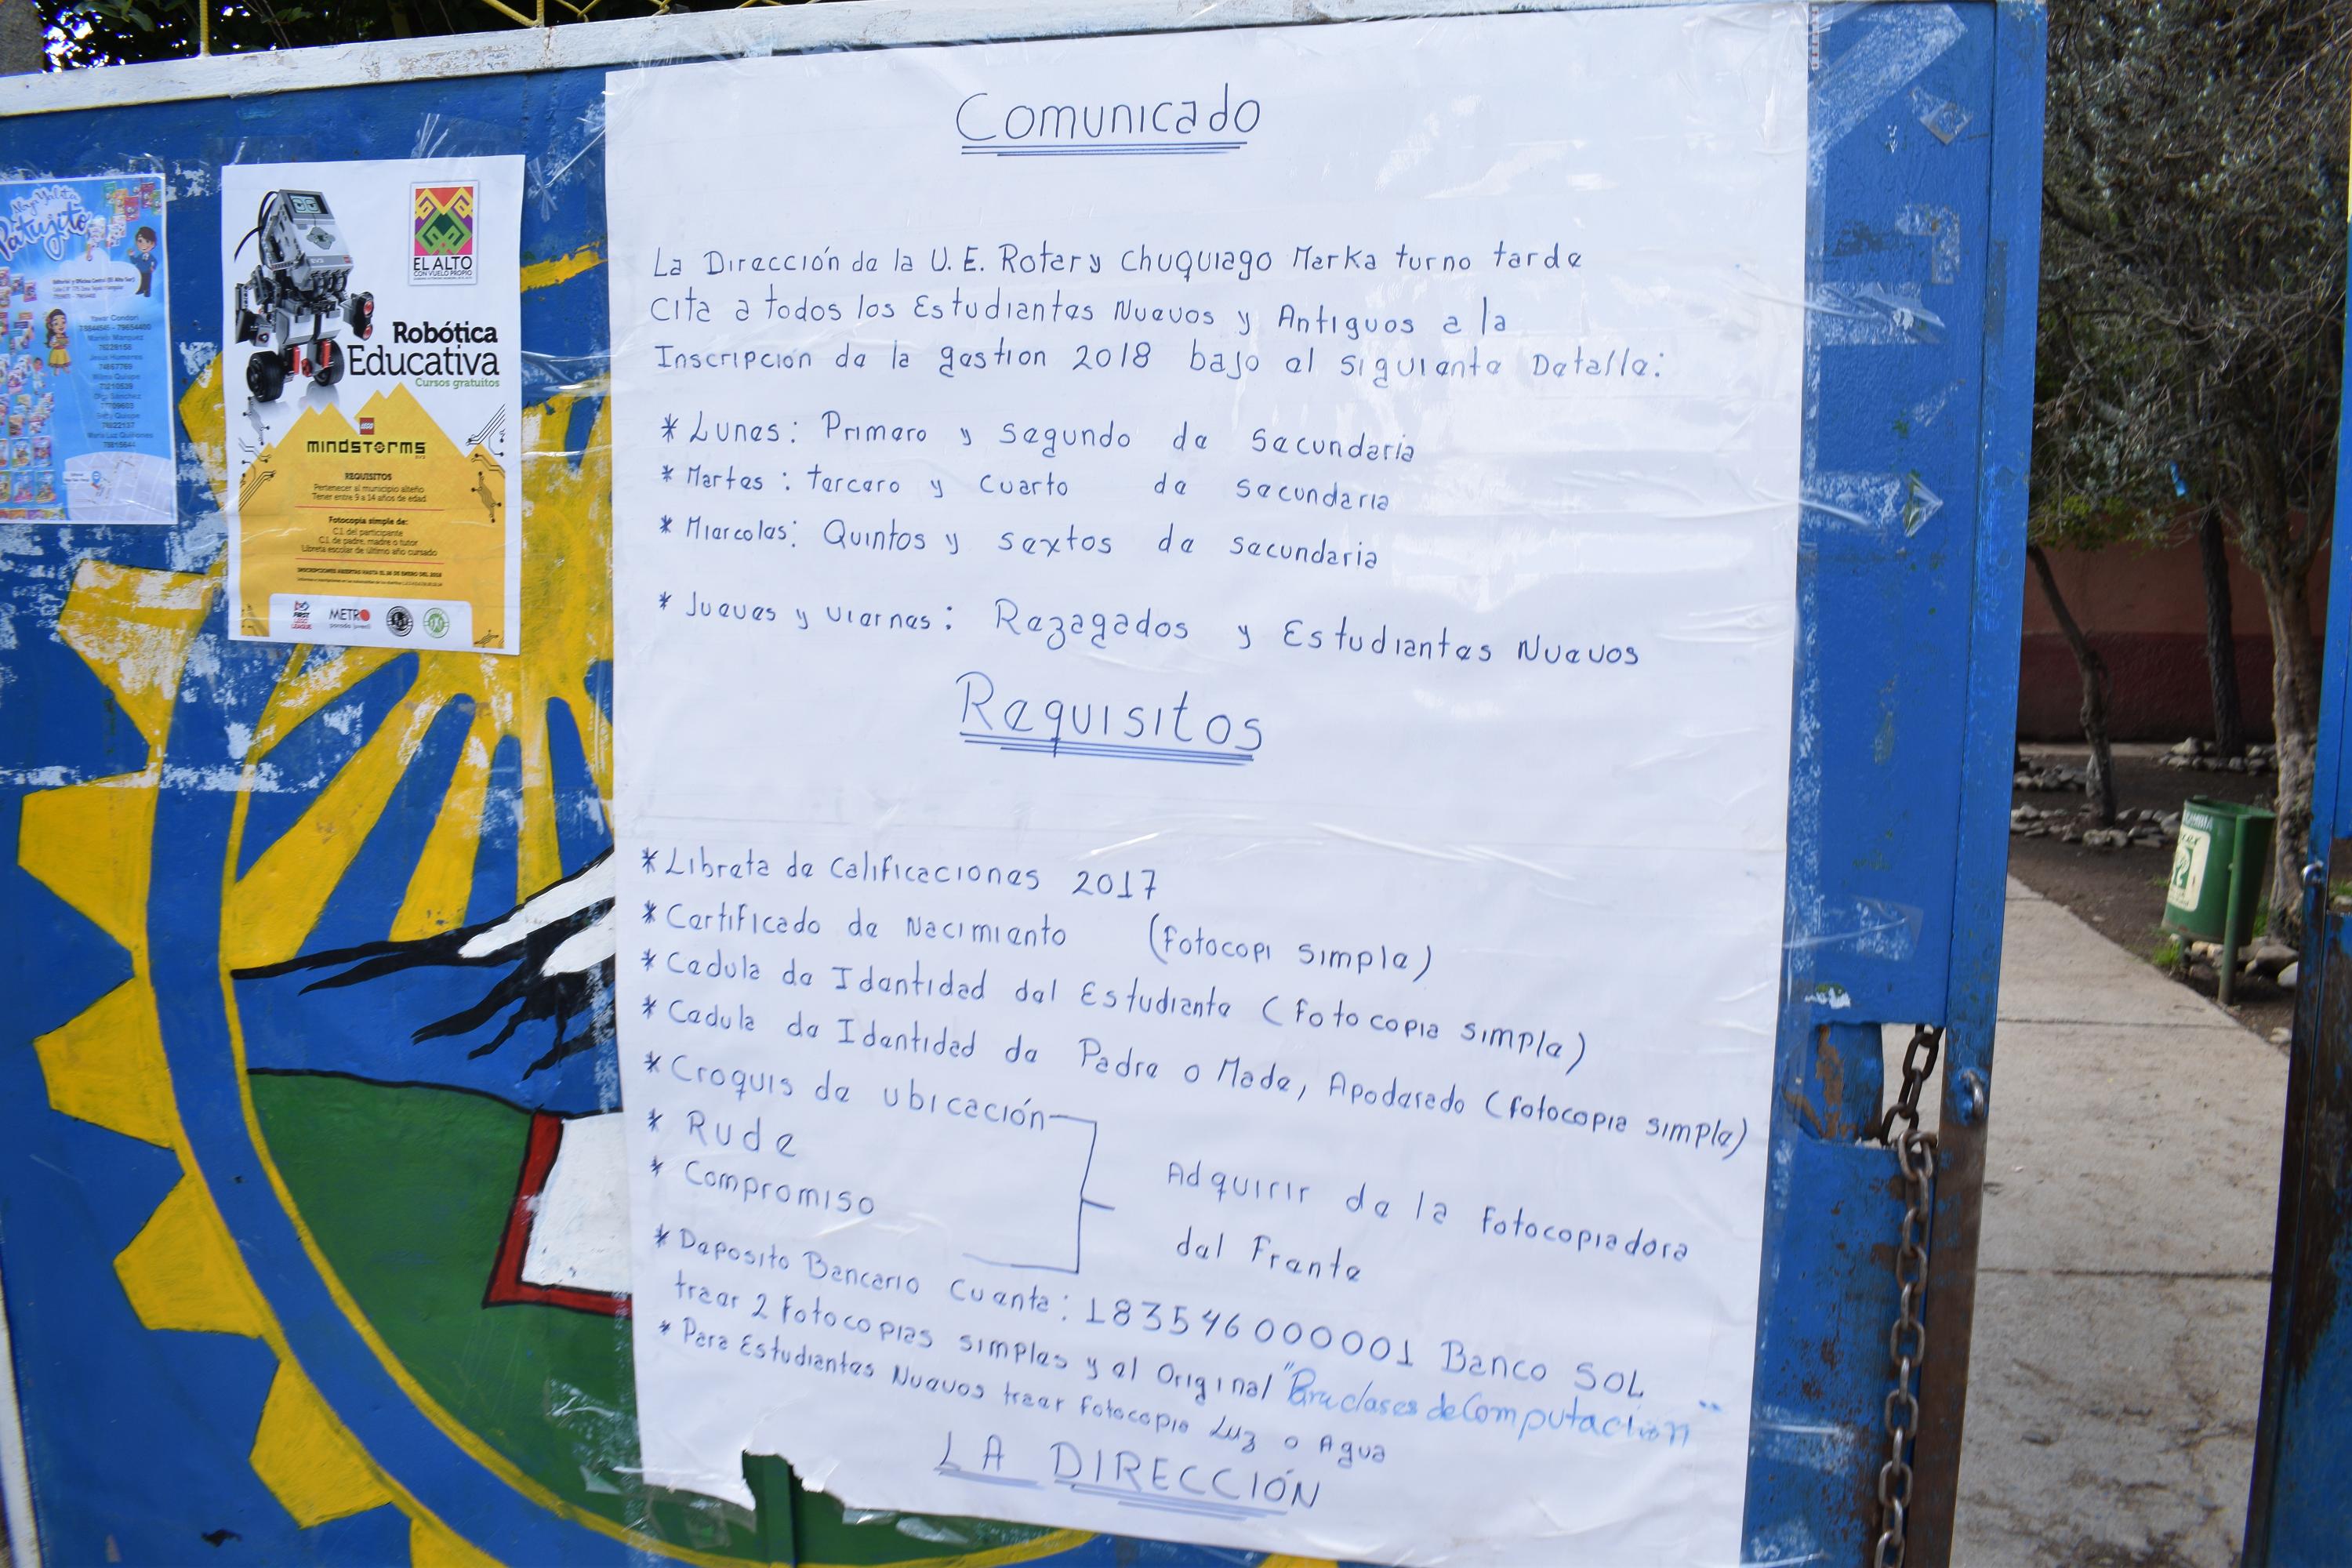 Comunicado
La Dirección de la U.E. Rotary Chuquiago Marka turno tarde
cita a todos los Estudiantes Nuevos y Antiguos a la
Inscripcion de la gestion 2018 bajo el siguiente Detalle:
* Lunes: Primero y segundo de secundaria
* Martes: tercero y cuarto de secundaria
* Miercoles: Quintos y sextos de secundaria
* Jueves y viernes: Rezagados y Estudiantes Nuevos
Requisitos
* Libreta de Calificaciones 2017
* Certificado de Nacimiento (fotocopi simple)
* Cedula de Identidad del Estudiante (fotocopia simple)
* Cedula de Identidad de Padre o Made, Apoderado (fotocopia simple)
* Croquis de ubicación
* Rude
* Compromiso
Adquirir de la fotocopiadora
del Frente
* Deposito Bancario Cuenta: 183546000001 Banco SOL
traer 2 Fotocopias simples y el Original "Para clases de Computación"
* Para Estudiantes Nuevos traer fotocopia Luz o Agua
LA DIRECCIÓN
EL ALTO
CON VUELO PROPIO
Robótica
Educativa
Cursos gratuitos
LEGO
mindstorms
EV3
REQUISITOS
Pertenecer al municipio alteño
Tener entre 9 a 14 años de edad
Fotocopia simple de:
C.I. del participante
C.I. de padre, madre o tutor
Libreta escolar de último año cursado
INSCRIPCIONES ABIERTAS HASTA EL 26 DE ENERO DEL 2018
FIRST
LEGO
LEAGUE
METRO
Patujito
Yawar Condori
79654400
Marvin Marquez
76229158
Jesus Humerez
74667769
Wilma Quispe
73210539
Olga Sánchez
Betty Quispe
76822137
María Luz Quiñones